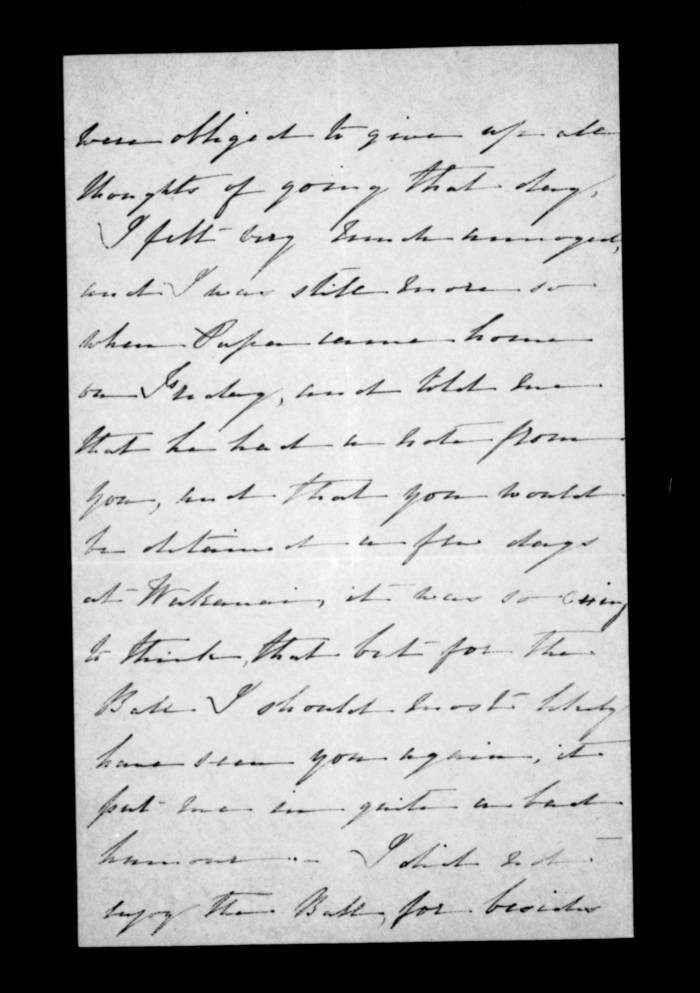 were obliged to give up all
thoughts of going that day,
I felt very much annoyed,
and I was still more so
when Papa came home
on Friday, and told me
that he had a note from
you, and that you would
be detained a few days
at Wakanui, it was so
to think, that but for the
Ball I should most likely
have seen you again, it
put me in quite a bad
humour — I did not
enjoy the Ball, for besides